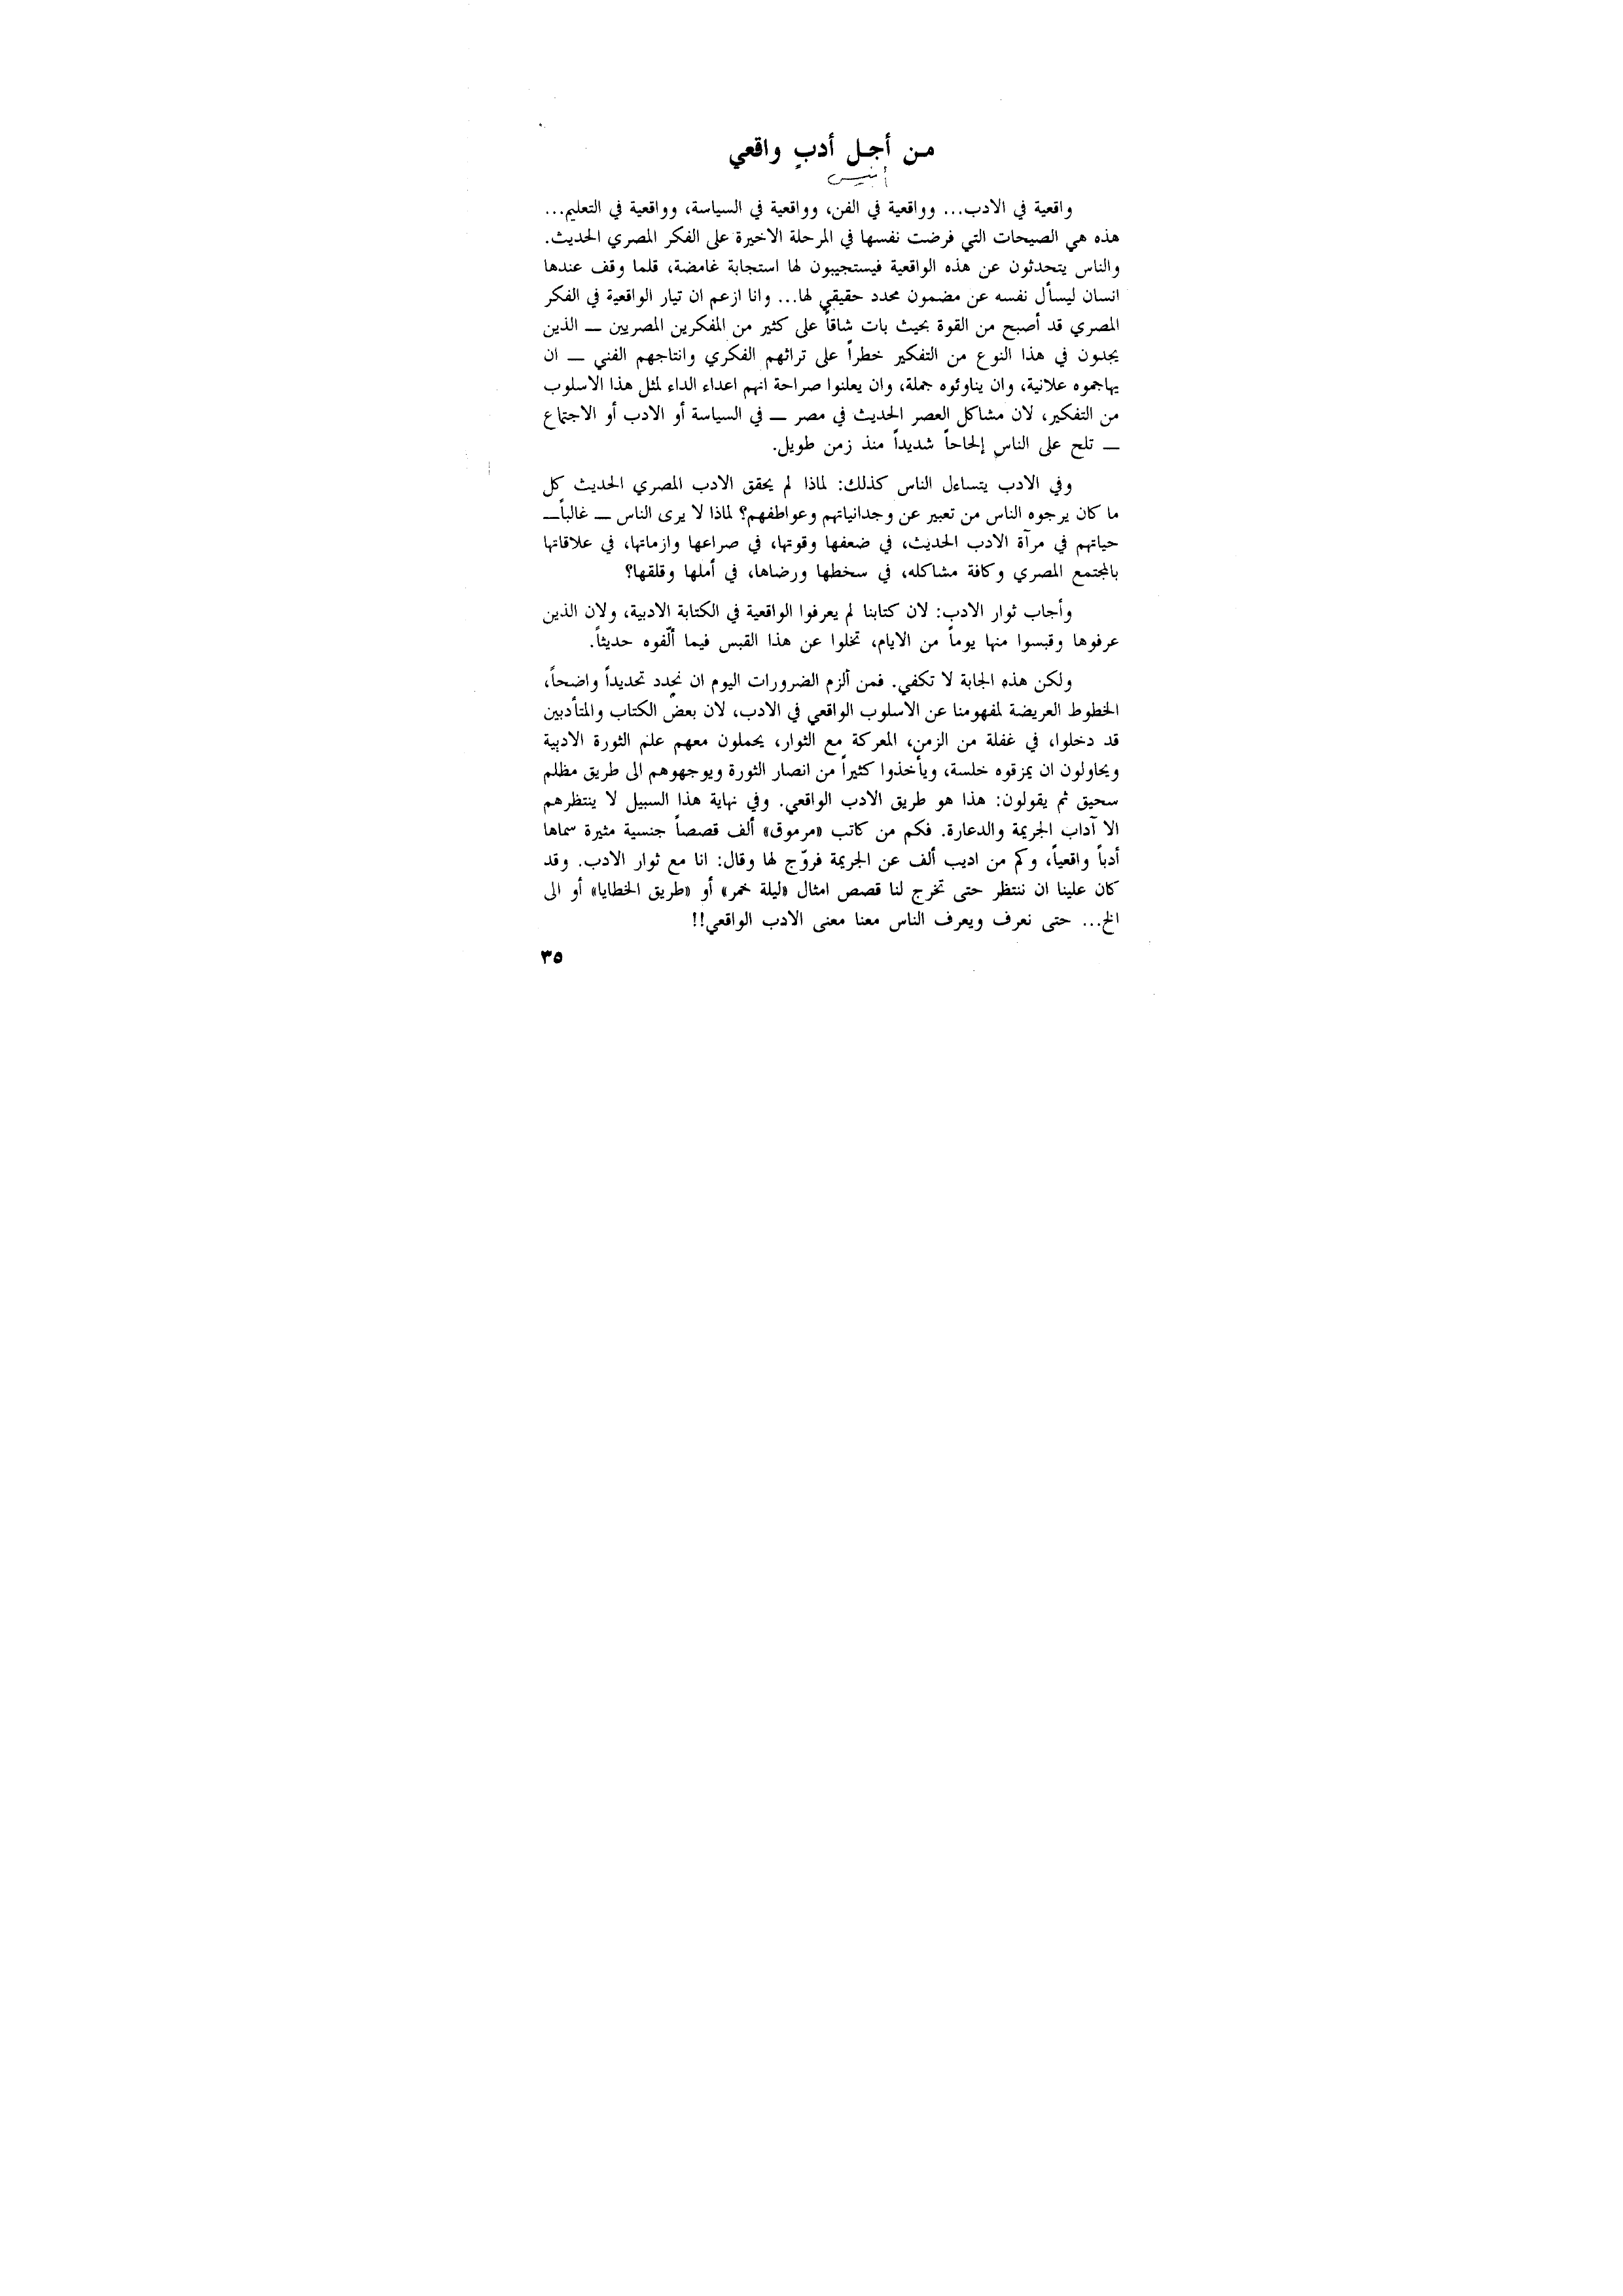 من أجل أدبٍ واقعي
أنيس
واقعية في الادب... وواقعية في الفن، وواقعية في السياسة، وواقعية في التعليم...
هذه هي الصيحات التي فرضت نفسها في المرحلة الاخيرة على الفكر المصري الحديث.
والناس يتحدثون عن هذه الواقعية فيستجيبون لها استجابة غامضة، قلما وقف عندها
انسان ليسأل نفسه عن مضمون محدد حقيقي لها... وانا ازعم ان تيار الواقعية في الفكر
المصري قد أصبح من القوة بحيث بات شاقاً على كثير من المفكرين المصريين — الذين
يجدون في هذا النوع من التفكير خطراً على تراثهم الفكري وانتاجهم الفني — ان
يهاجموه علانية، وان يناوئوه جملة، وان يعلنوا صراحة انهم اعداء الداء لمثل هذا الاسلوب
من التفكير، لان مشاكل العصر الحديث في مصر — في السياسة أو الادب أو الاجتماع
— تلح على الناس إلحاحاً شديداً منذ زمن طويل.
وفي الادب يتساءل الناس كذلك: لماذا لم يحقق الادب المصري الحديث كل
ما كان يرجوه الناس من تعبير عن وجدانياتهم وعواطفهم؟ لماذا لا يرى الناس — غالباً—
حياتهم في مرآة الادب الحديث، في ضعفها وقوتها، في صراعها وازماتها، في علاقاتها
بالمجتمع المصري وكافة مشاكله، في سخطها ورضاها، في أملها وقلقها؟
وأجاب ثوار الادب: لان كتابنا لم يعرفوا الواقعية في الكتابة الادبية، ولان الذين
عرفوها وقبسوا منها يوماً من الايام، تخلوا عن هذا القبس فيما ألّفوه حديثاً.
ولكن هذه الجابة لا تكفي. فمن ألزم الضرورات اليوم ان نحدد تحديداً واضحاً،
الخطوط العريضة لمفهومنا عن الاسلوب الواقعي في الادب، لان بعض الكتاب والمتأدبين
قد دخلوا، في غفلة من الزمن، المعركة مع الثوار، يحملون معهم علم الثورة الادبية
ويحاولون ان يمزقوه خلسة، ويأخذوا كثيراً من انصار الثورة ويوجهوهم الى طريق مظلم
سحيق ثم يقولون: هذا هو طريق الادب الواقعي. وفي نهاية هذا السبيل لا ينتظرهم
الا آداب الجريمة والدعارة. فكم من كاتب «مرموق» ألف قصصاً جنسية مثيرة سماها
أدباً واقعياً، وكم من اديب ألف عن الجريمة فروّج لها وقال: انا مع ثوار الادب. وقد
كان علينا ان ننتظر حتى تخرج لنا قصص امثال «ليلة خمر» أو «طريق الخطايا» أو الى
الخ... حتى نعرف ويعرف الناس معنا معنى الادب الواقعي!!
٣٥